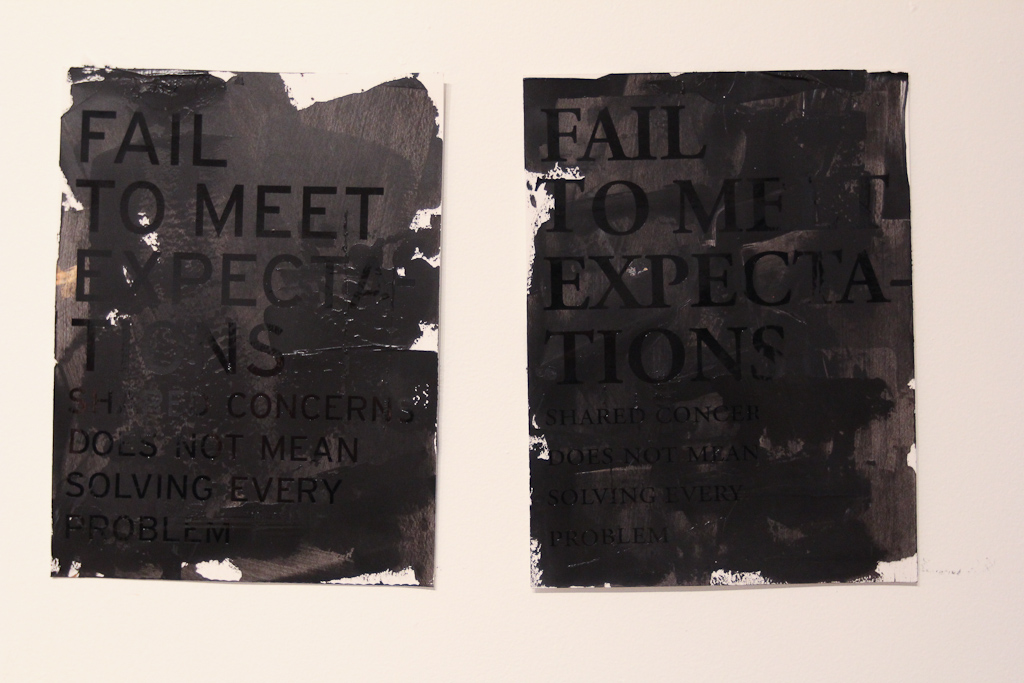 FAIL
TO MEET
EXPECTA-
TIONS
SHARED CONCERNS
DOES NOT MEAN
SOLVING EVERY
PROBLEM
FAIL
TO MEET
EXPECTA-
TIONS
SHARED CONCER
DOES NOT MEAN
SOLVING EVERY
PROBLEM